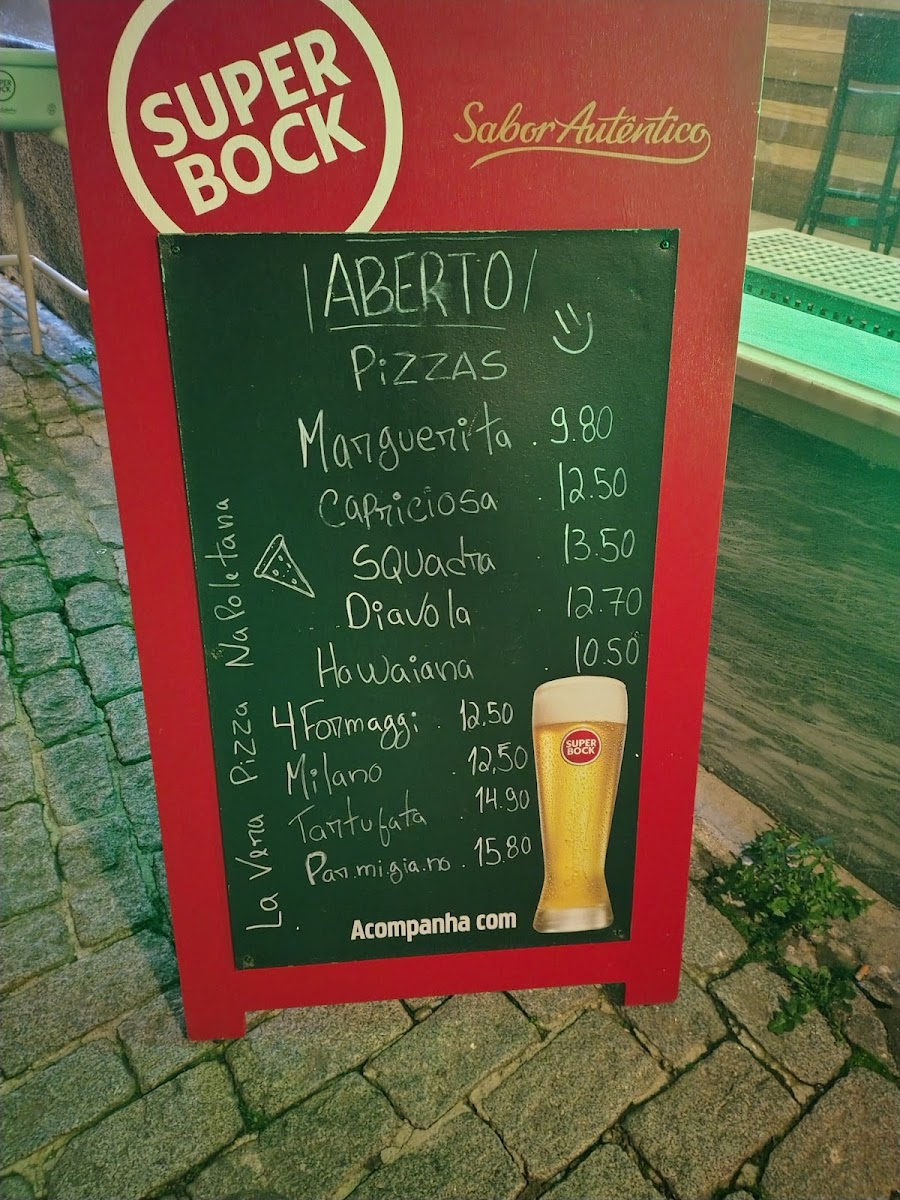 SUPER
BOCK
Sabor Autêntico
ABERTO
PIZZAS
Marguerita . 9.80
Capriciosa . 12.50
SQUADRA . 13.50
Diavola . 12.70
Hawaiana . 10.50
4 Formaggi . 12.50
Milano . 12,50
Tartufata . 14.90
Par.mi.gia.no . 15.80
La Vera Pizza Napoletana
SUPER
BOCK
Acompanha com